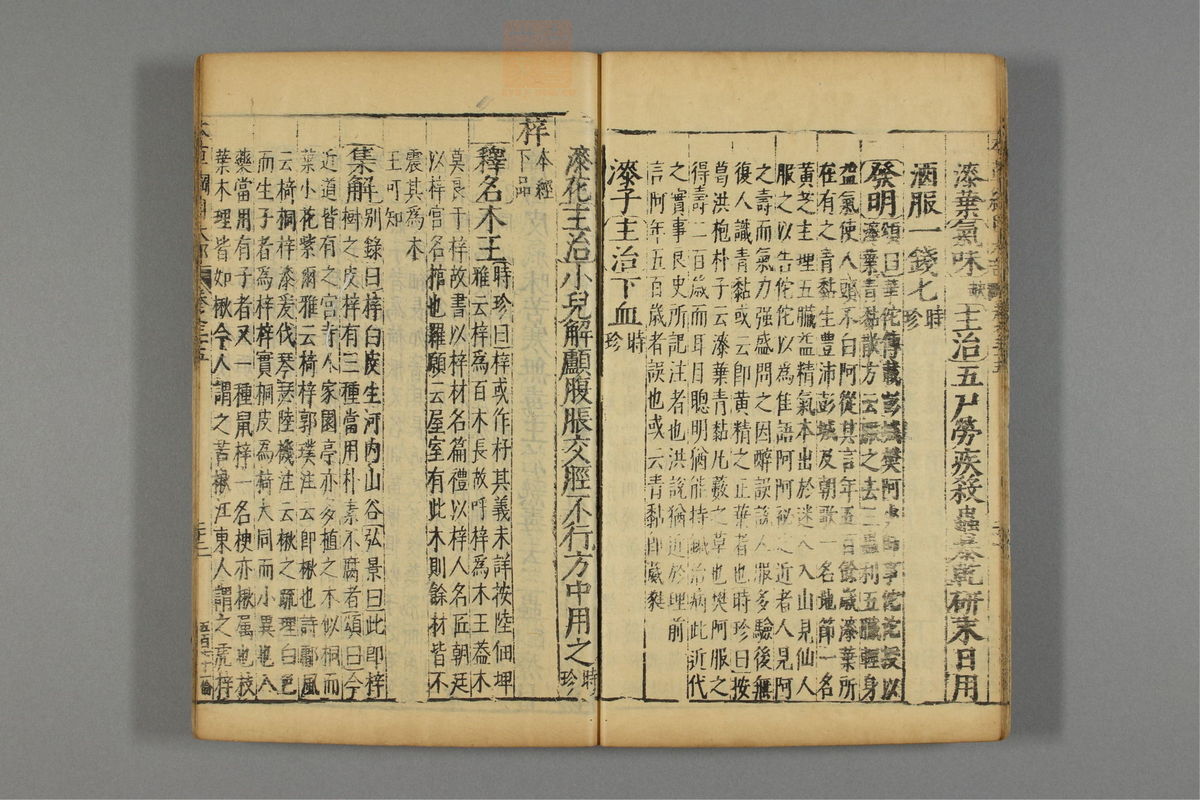 漆葉氣味缺主治五尸勞疾殺蟲暴乾研末日用
酒服一錢七時珍
發明頌曰華佗傳載彭城樊阿少時事佗佗授以
漆葉青黏散方云服之去三蟲利五臟輕身
益氣使人頭不白阿從其言年五百餘歲漆葉所
在有之青黏生豐沛彭城及朝歌一名地節一名
黃芝主理五臟益精氣本出於迷入入山見仙人
服之以告佗佗以為佳語阿阿祕之近者人見阿
之壽而氣力强盛問之因醉誤說人服多驗後無
復人識青黏或云卽黃精之正葉者也時珍曰按
葛洪枹朴子云漆葉青黏凡藪之草也樊阿服之
得壽二百歲而耳目聰明猶能持鍼治病此近代
之實事良史所記注者也洪說猶近於理前
言阿年五百歲者誤也或云青黏卽葳蕤
漆子主治下血時珍
漆花主治小兒解顱腹脹交脛不行方中用之時珍
梓本經下品
釋名木王時珍曰梓或作杍其義未詳按陸佃埤
雅云梓為百木長故呼梓為木王葢木
莫良于梓故書以梓材名篇禮以梓人名匠朝廷
以梓宮名棺也羅願云屋室有此木則餘材皆不
震其為木
王可知
集解别錄曰梓白皮生河內山谷弘景曰此卽梓
樹之皮梓有三種當用朴素不腐者頌曰今
近道皆有之宮寺人家園亭亦多植之木似桐而
葉小花紫爾雅云椅梓郭璞注云卽楸也詩鄘風
云椅桐梓漆爰伐琴瑟陸璣注云楸之疏理白色
而生子者為梓梓實桐皮為椅大同而小異也入
藥當用有子者又一種鼠梓一名楰亦楸屬也枝
葉木理皆如楸今人謂之苦楸江東人謂之虎梓